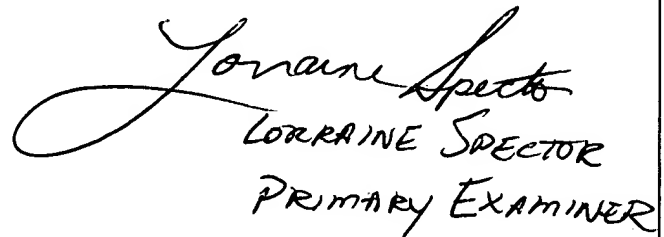 Lorraine Spector
LORRAINE SPECTOR
PRIMARY EXAMINER